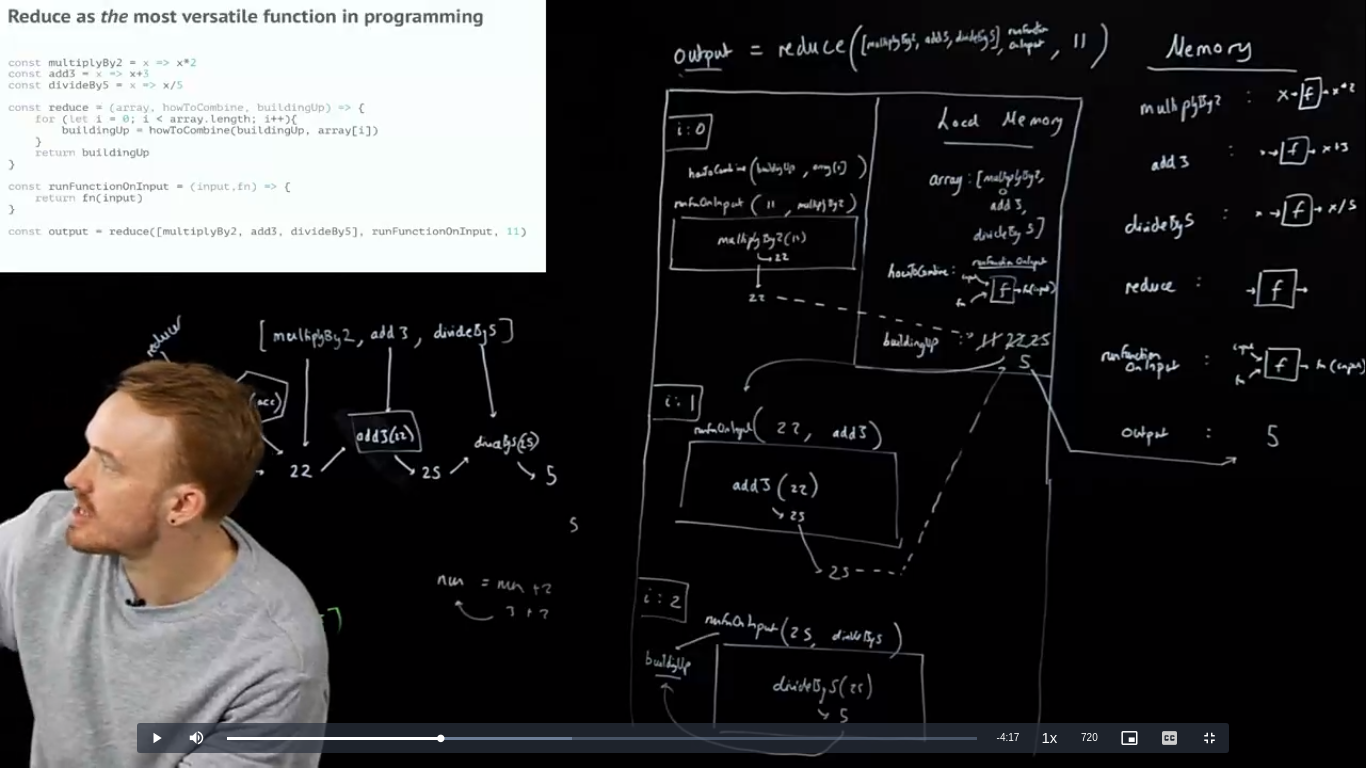 Reduce as the most versatile function in programming
const multiplyBy2 = x => x*2
const add3 = x => x+3
const divideBy5 = x => x/5
const reduce = (array, howToCombine, buildingUp) => {
for (let i = 0; i < array.length; i++){
buildingUp = howToCombine(buildingUp, array[i])
}
return buildingUp
}
const runFunctionOnInput = (input,fn) => {
return fn(input)
}
const output = reduce([multiplyBy2, add3, divideBy5], runFunctionOnInput, 11)
reducer
[multiplyBy2, add3, divideBy5]
(acc)
add3(22)
divideBy5(25)
22
25
5
5
num = num +2
3 + 2
output = reduce([multiplyBy2, add3, divideBy5], runFunction OnInput, 11)
i:0
howToCombine(buildingUp, array[i])
runFnOnInput(11, multiplyBy2)
multiplyBy2(11)
22
22
Local Memory
array: [multiplyBy2,
add3,
divideBy5]
howToCombine:
runFunctionOnInput
input
fn
f
fn(input)
buildingUp : 11 22 25
5
i:1
runFnOnInput(22, add3)
add3(22)
25
25
i:2
runFnOnInput(25, divideBy5)
buildingUp
divideBy5(25)
5
Memory
multiplyBy2 : x f x*2
add3 : x f x+3
divideBy5 : x f x/5
reduce : f
runFunction
OnInput : input fn f fn(input)
output : 5
-4:17
1x
720
CC